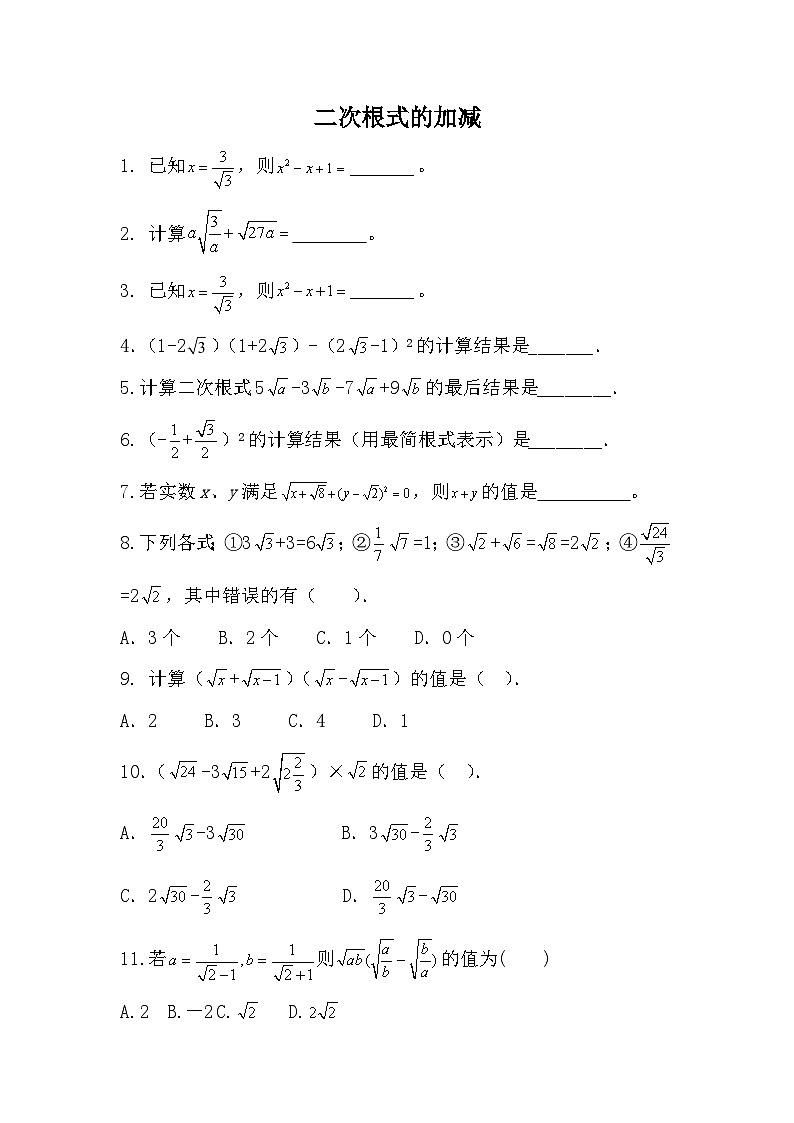 二次根式的加减
1. 已知x=3/√3，则x²－x+1=_______。
2. 计算a√(3/a)+√(27a)=________。
3. 已知x=3/√3，则x²－x+1=_______。
4.（1-2√3）（1+2√3）-（2√3-1）²的计算结果是_______．
5.计算二次根式5√a-3√b-7√a+9√b的最后结果是________．
6.（-1/2+√3/2）²的计算结果（用最简根式表示）是________．
7.若实数x、y满足√(x+√8+(y－√2)²=0)，则x+y的值是__________。
8.下列各式：①3√3+3=6√3；②1/7√7=1；③√2+√6=√8=2√2；④√24/√3
=2√2，其中错误的有（　　）．
A．3个　B．2个　C．1个　D．0个
9. 计算（√x+√(x－1)）（√x-√(x－1)）的值是（　）．
A．2　B．3　C．4　D．1
10.（√24-3√15+2√(2 2/3)）×√2的值是（　）．
A．20/3√3-3√30　B．3√30-2/3√3
C．2√30-2/3√3　D．20/3√3-√30
11.若a=1/(√2－1),b=1/(√2+1)则√ab(√(a/b)－√(b/a))的值为(　　)
A.2 B.－2 C.√2 D.2√2